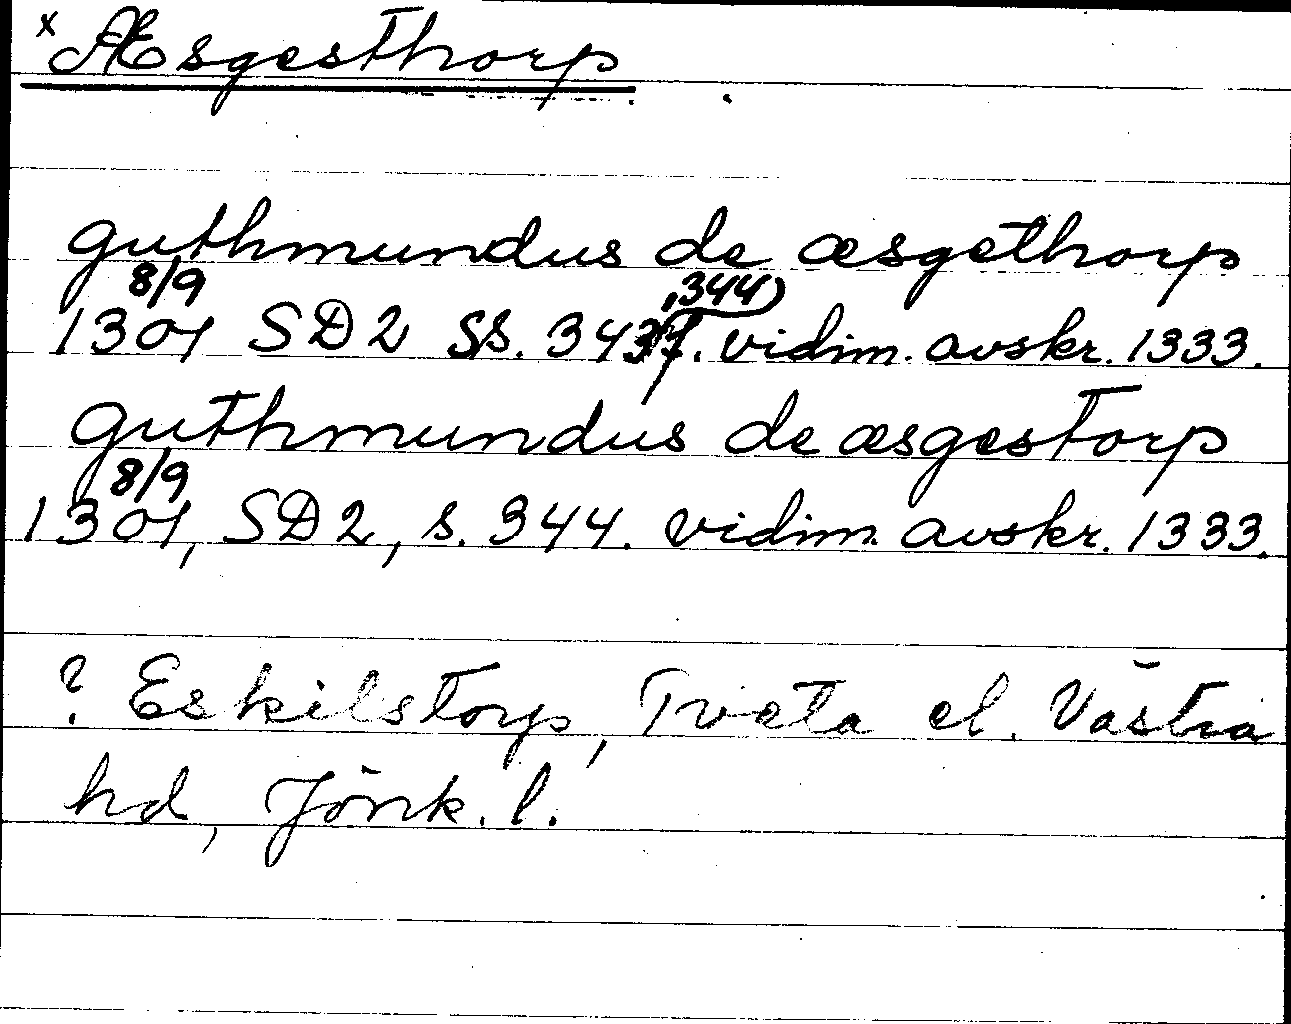 x Æsgesthorp
guthmundus de æsgethorp
8/9
1301 SD2 SS. 343, 344) vidim. avskr. 1333.
guthmundus de æsgestorp
8/9
1301, SD2, s. 344. vidim. avskr. 1333.
? Eskilstorp, Tveta el. Västra
hd, Jönk. l.